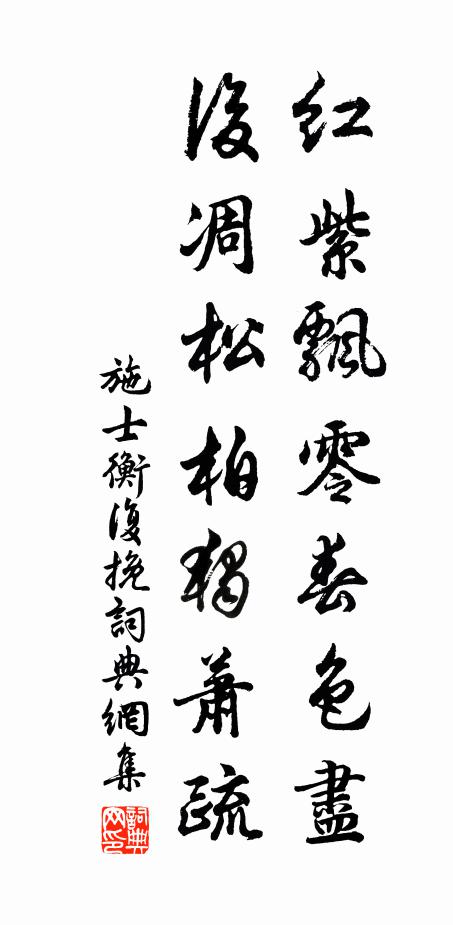 红紫飄零春色盡
後凋松柏獨蕭疏
施士衡復挽詞典網集
詞典网印